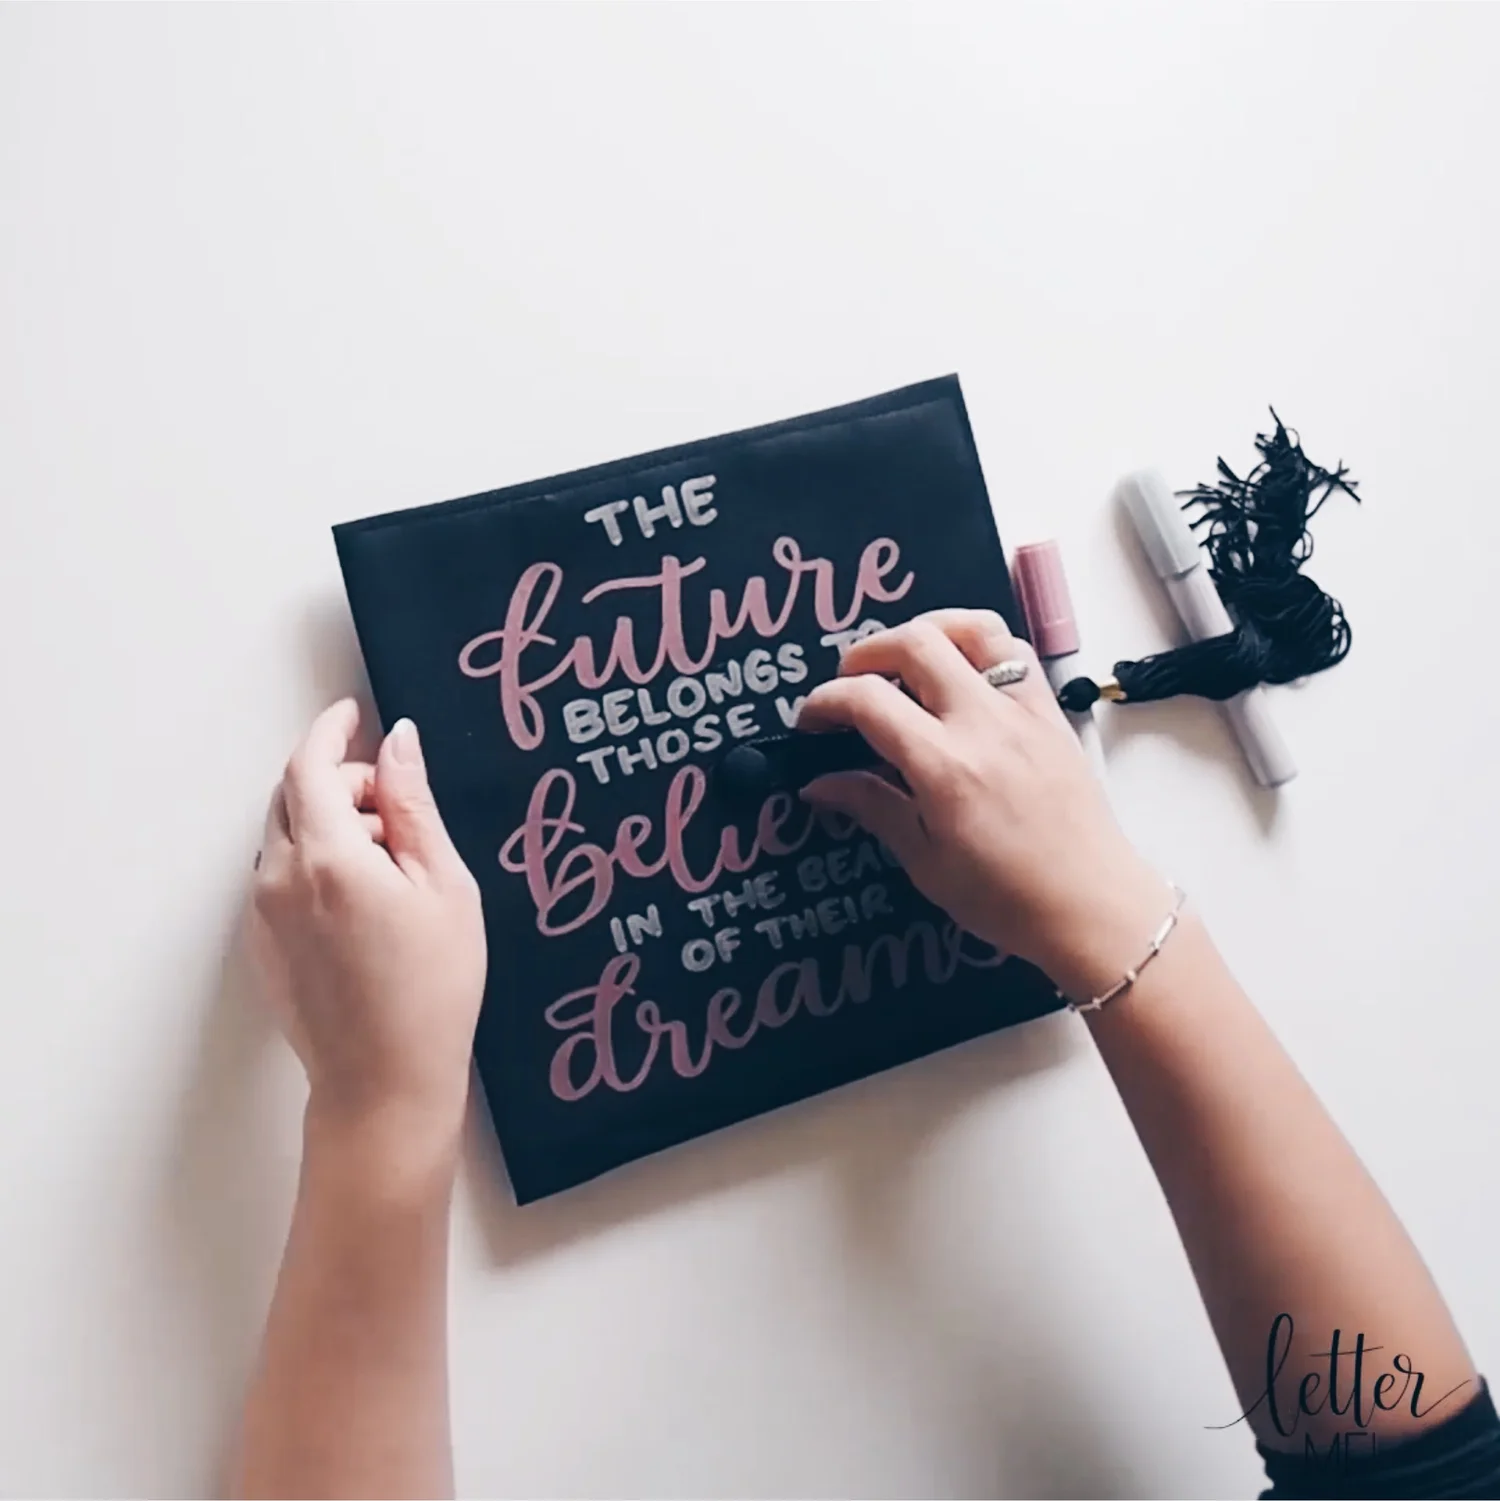 THE
future
BELONGS TO
THOSE
believe
IN THE
OF THEIR
dreams
letter